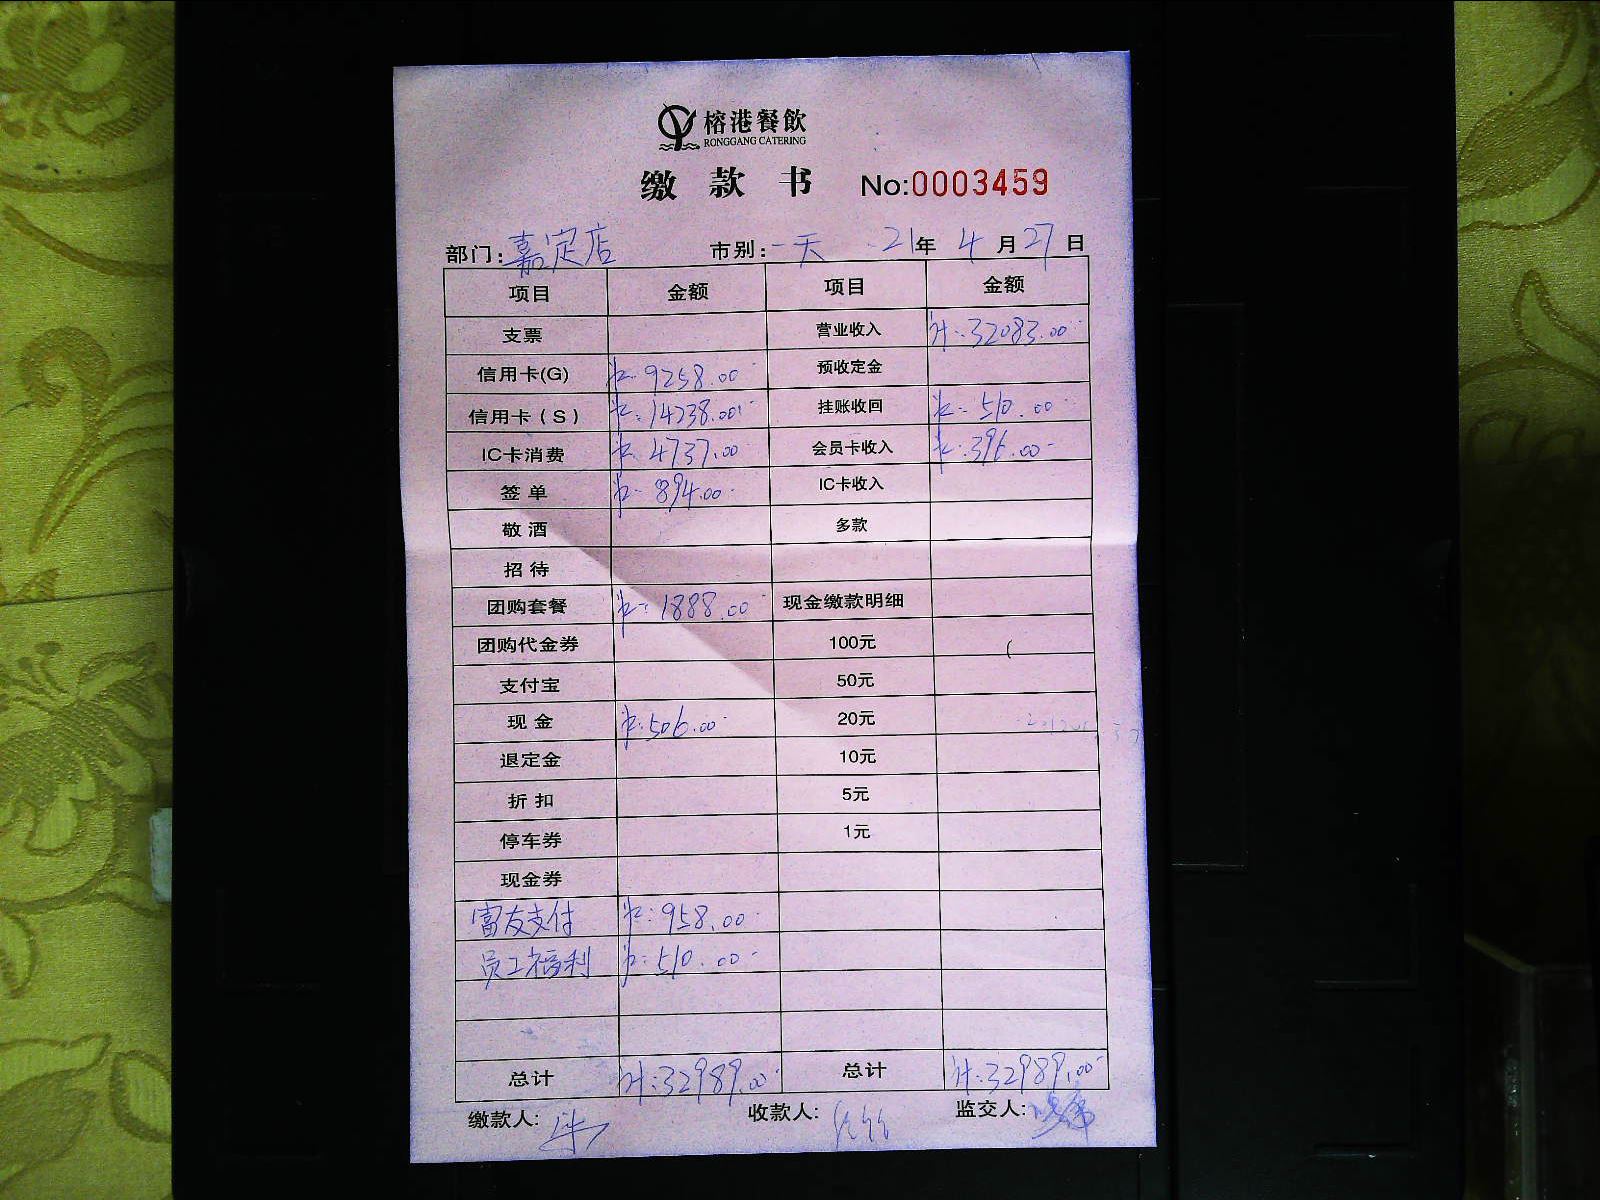 榕港餐飲
RONGGANG CATERING
缴款书 No:0003459
部门:嘉定店 市别:一天 21年4月27日
项目 金额 项目 金额
支票 营业收入 计:32083.00
信用卡(G) 9258.00 预收定金
信用卡(S) 14238.00 挂账收回 510.00
IC卡消费 4737.00 会员卡收入 396.00
签单 894.00 IC卡收入
敬酒 多款
招待
团购套餐 1888.00 现金缴款明细
团购代金券 100元
支付宝 50元
现金 506.00 20元
退定金 10元
折扣 5元
停车券 1元
现金券
富友支付 958.00
员工福利 510.00
总计 计:32989.00 总计 计:32989.00
缴款人: 收款人: 监交人: